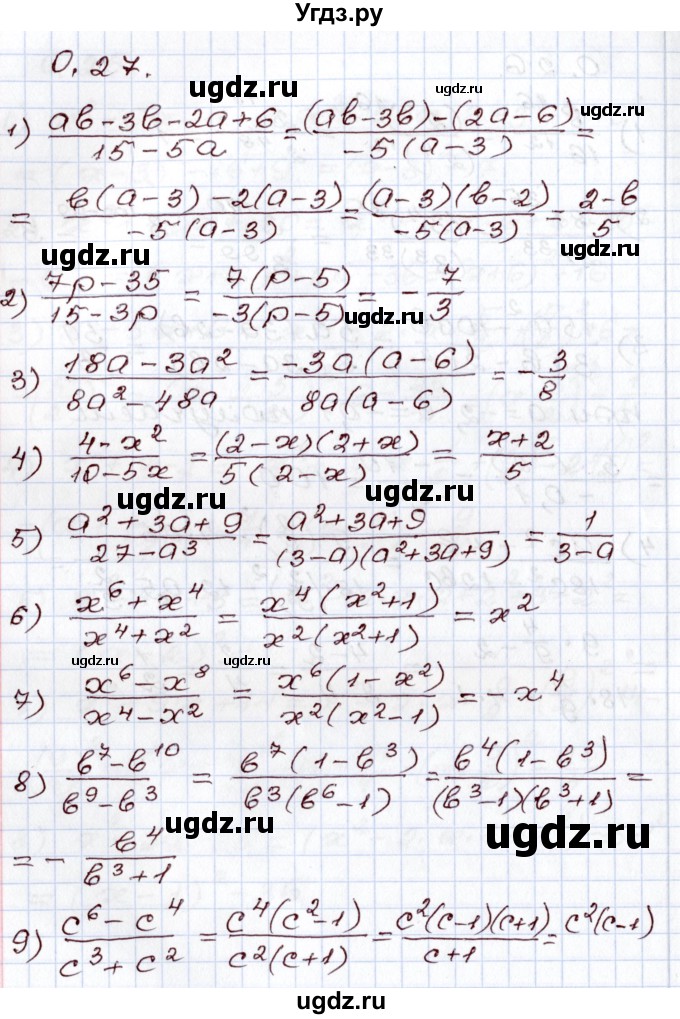 Угдз.ру
0.27.
ugdz.ru ugdz.ru
1) (ab-3b-2a+6)/(15-5a) = ((ab-3b)-(2a-6))/(-5(a-3)) =
ugdz.ru
= (b(a-3)-2(a-3))/(-5(a-3)) = ((a-3)(b-2))/(-5(a-3)) = (2-b)/5
ugdz.ru ugdz.ru
2) (7p-35)/(15-3p) = (7(p-5))/(-3(p-5)) = -7/3
ugdz.ru
3) (18a-3a²)/(8a²-48a) = (-3a(a-6))/(8a(a-6)) = -3/8
4) (4-x²)/(10-5x) = ((2-x)(2+x))/(5(2-x)) = (x+2)/5
ugdz.ru ugdz.ru
5) (a²+3a+9)/(27-a³) = (a²+3a+9)/((3-a)(a²+3a+9)) = 1/(3-a)
ugdz.ru
6) (x⁶+x⁴)/(x⁴+x²) = (x⁴(x²+1))/(x²(x²+1)) = x²
ugdz.ru ugdz.ru
7) (x⁶-x⁸)/(x⁴-x²) = (x⁶(1-x²))/(x²(x²-1)) = -x⁴
8) (b⁷-b¹⁰)/(b⁹-b³) = (b⁷(1-b³))/(b³(b⁶-1)) = (b⁴(1-b³))/((b³-1)(b³+1)) =
ugdz.ru ugdz.ru
= -b⁴/(b³+1)
9) (c⁶-c⁴)/(c³+c²) = (c⁴(c²-1))/(c²(c+1)) = (c²(c-1)(c+1))/(c+1) = c²(c-1)
ugdz.ru